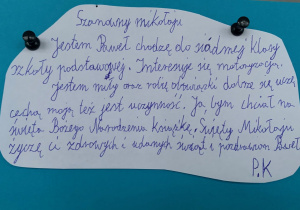 Szanowny mikołaju
Jestem Paweł chodzę do siódmej klasy
szkoły podstawowej. Interesuje się motoryzacją.
Jestem miły oraz robię obowiązki dobrze się uczę
cechą moją też jest uczynność. Ja bym chciał na
święta Bożego Narodzenia książkę. Święty Mikołaju
życzę ci zdrowych i udanych świąt i pozdrawiam
P.K